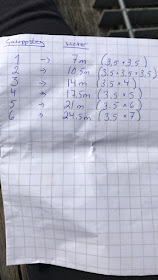 Galoppsteg meter
1 → 7m (3,5 + 3,5)
2 → 10,5m (3,5 + 3,5 + 3,5)
3 → 14m (3,5 × 4)
4 → 17,5m (3,5 × 5)
5 → 21m (3,5 × 6)
6 → 24,5m (3,5 × 7)